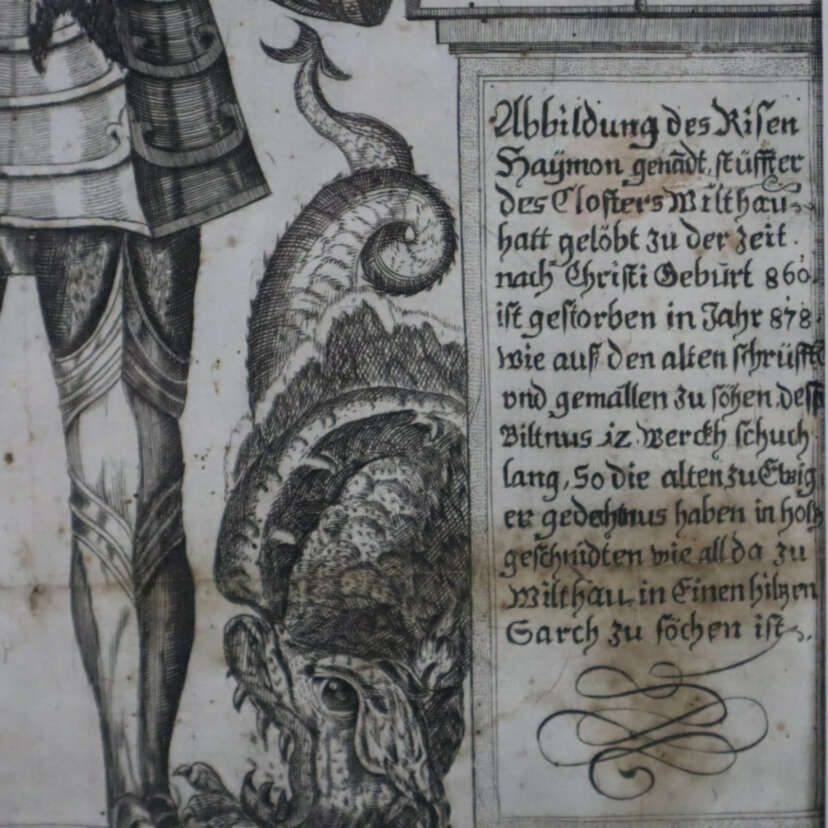 Abbildung des Risen
Haÿmon genādt, stüffter
des Closters Wilthau
hatt gelöbt zu der zeit.
nach Christi Gebürt 860.
ist gestorben in Jahr 878.
wie auß den alten schrüfft
vnd gemallen zu söhen, deß
Biltnus 12 Werckh schuch
lang, So die alten zu Ewig
er gedechtnus haben in holtz
geschnidten wie all da zu
Wilthau in Einen hiltzen
Sarch zu söchen ist.